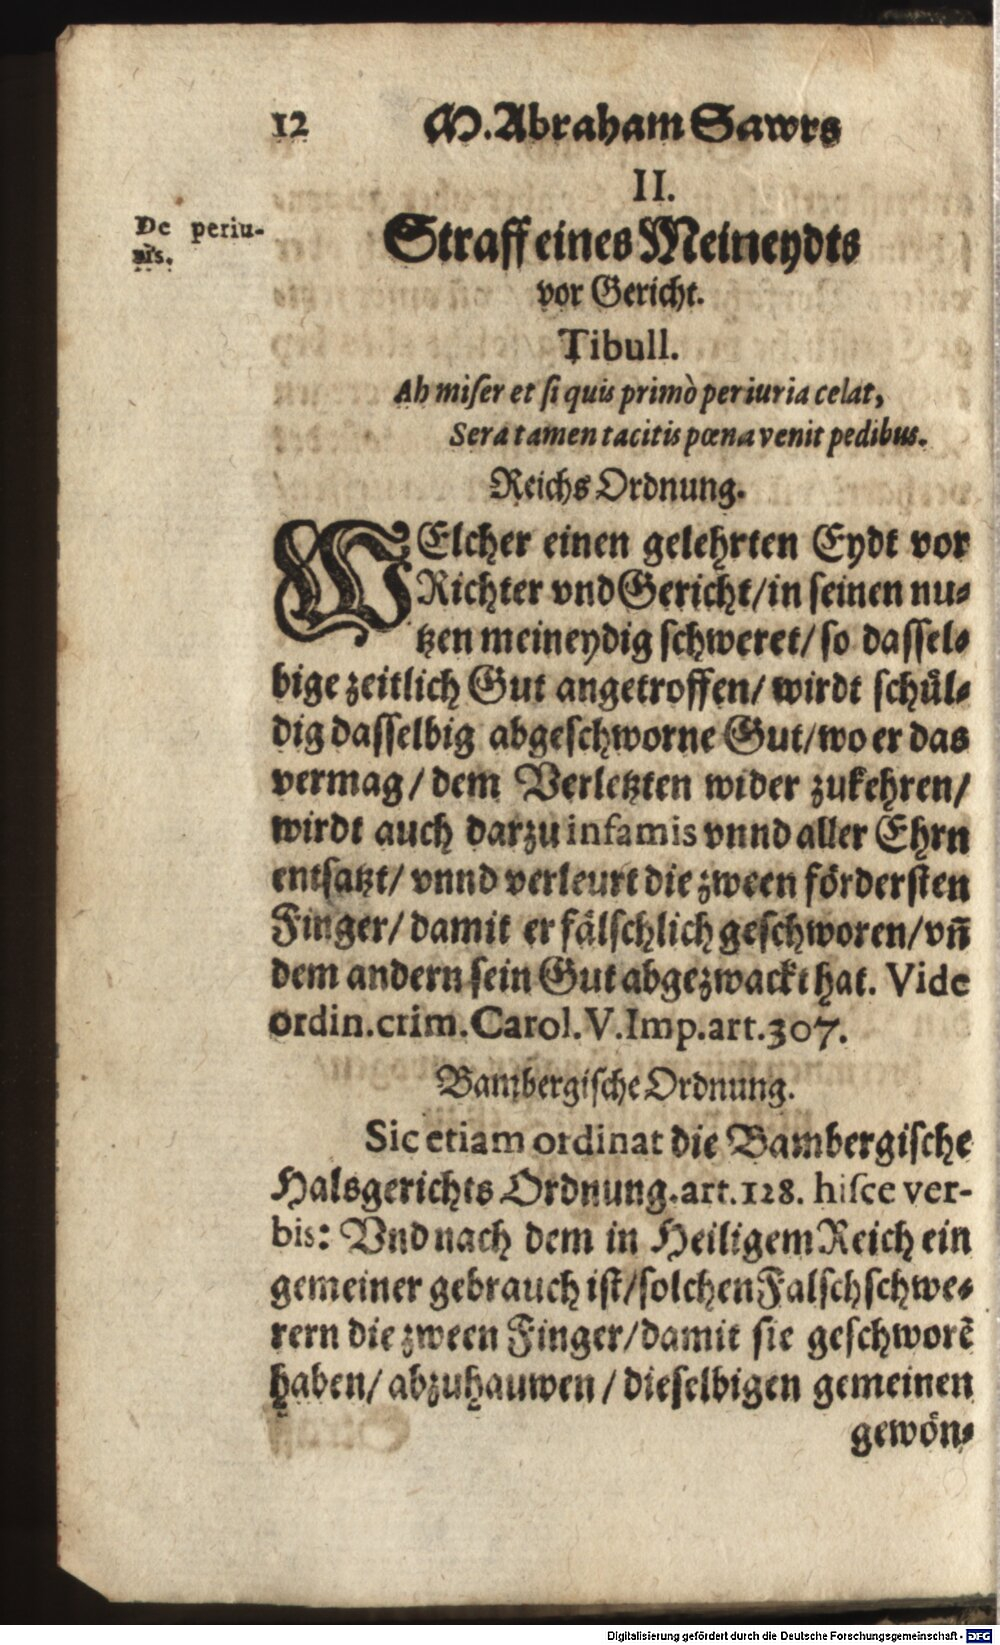 12 M. Abraham Sawrs
II.
De periu-
riis.
Straff eines Meineydts
vor Gericht.
Tibull.
Ah miſer et ſi quis primò periuria celat,
Sera tamen tacitis pœna venit pedibus.
Reichs Ordnung.
WElcher einen gelehrten Eydt vor
Richter vnd Gericht/in ſeinen nu-
tzen meineydig ſchweret/ ſo daſſel-
bige zeitlich Gut angetroffen/ wirdt ſchuͤl-
dig daſſelbig abgeſchworne Gut/wo er das
vermag / dem Verletzten wider zukehren/
wirdt auch darzu infamis vnnd aller Ehrn
entſatzt/ vnnd verleurt die zween foͤrderſten
Finger/ damit er faͤlſchlich geſchworen/ vñ
dem andern ſein Gut abgezwackt hat. Vide
ordin.crim.Carol.V.Imp.art.307.
Bambergiſche Ordnung.
Sic etiam ordinat die Bambergiſche
Halsgerichts Ordnung.art.128. hiſce ver-
bis: Vnd nach dem in Heiligem Reich ein
gemeiner gebrauch iſt/ſolchen Falſchſchwe-
rern die zween Finger/damit ſie geſchworẽ
haben/ abzuhauwen / dieſelbigen gemeinen
gewoͤn-
Digitalisierung gefördert durch die Deutsche Forschungsgemeinschaft - DFG